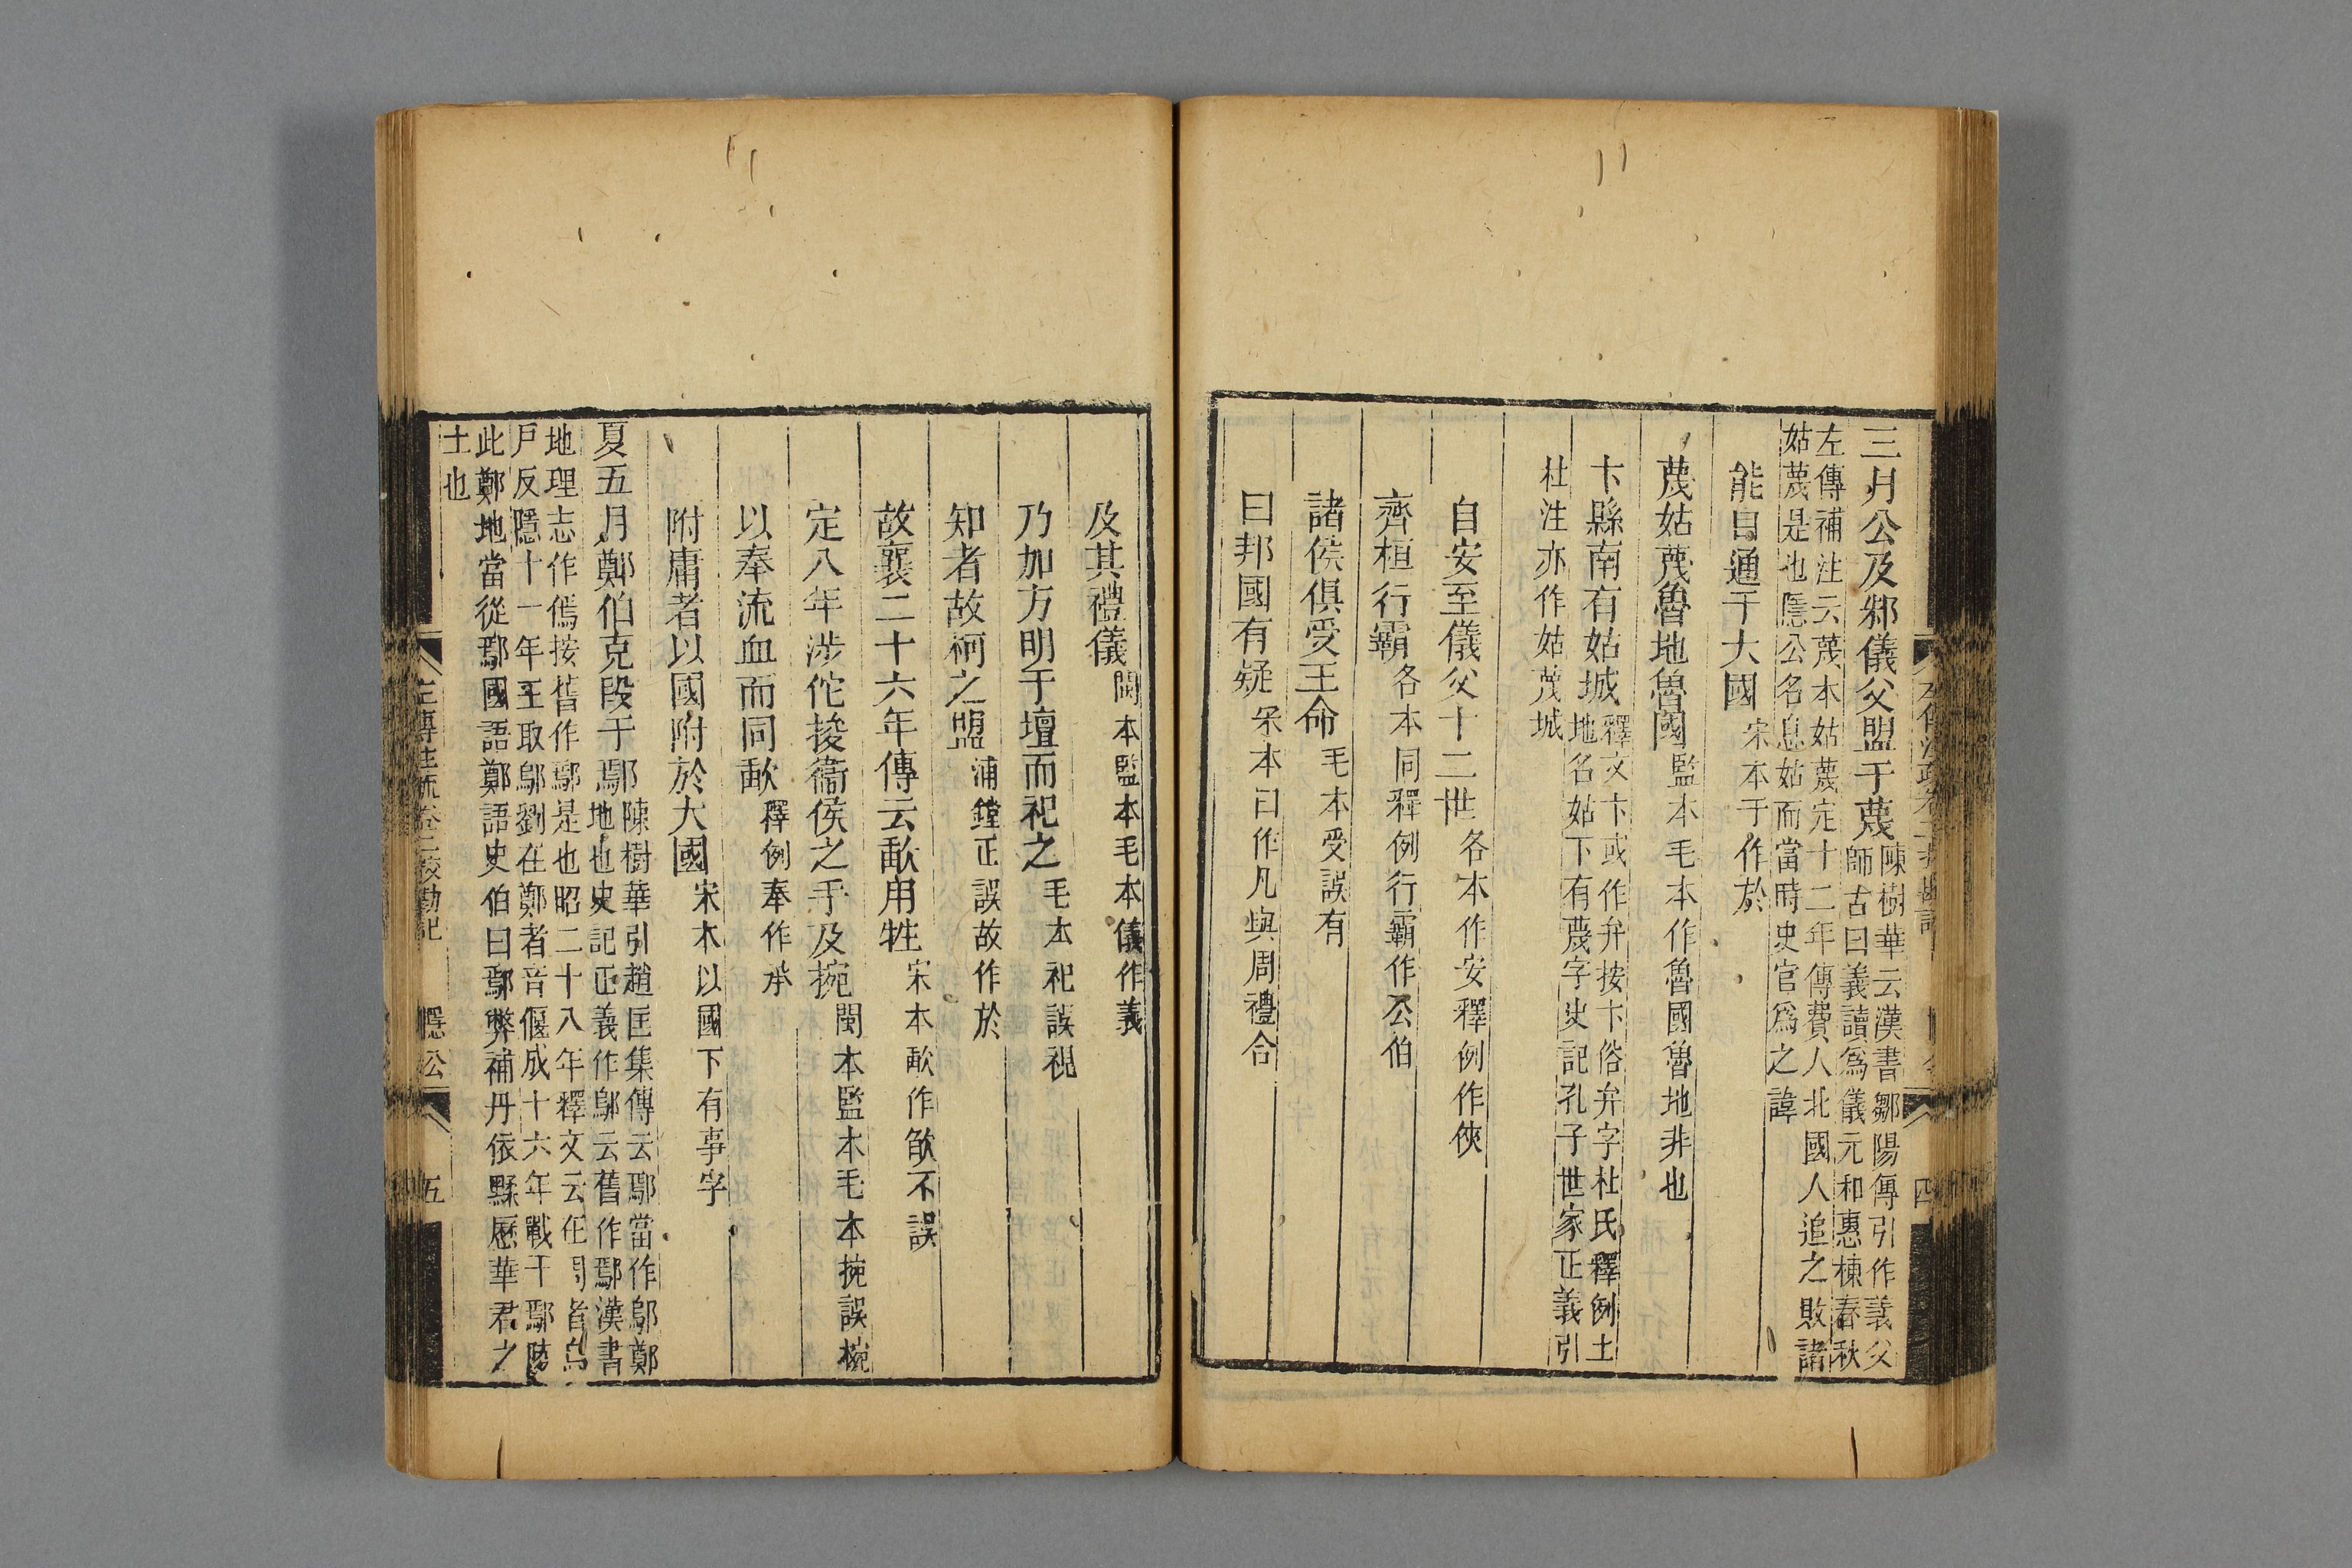 三月公及邾儀父盟于蔑陳樹華云漢書鄒陽傳引作義父
師古曰義讀爲儀元和惠棟春秋
左傳補注云蔑本姑蔑定十二年傳費人北國人追之敗諸
姑蔑是也隱公名息姑而當時史官爲之諱
能自通于大國宋本于作於
蔑姑蔑魯地魯國監本毛本作魯國魯地非也
卞縣南有姑城釋文卞或作弁按卞俗弁字杜氏釋例土
地名姑下有蔑字史記孔子世家正義引
杜注亦作姑蔑城
自安至儀父十二世各本作安釋例作俠
齊桓行霸各本同釋例行霸作公伯
諸侯俱受王命毛本受誤有
曰邦國有疑宋本曰作凡與周禮合
左傳注疏卷二校勘記 四
及其禮儀閩本監本毛本儀作義
乃加方明于壇而祀之毛本祀誤視
知者故柯之盟浦鏜正誤故作於
故襄二十六年傳云歃用牲宋本歃作欿不誤
定八年涉佗捘衞侯之手及捥閩本監本毛本捥誤椀
以奉流血而同歃釋例奉作承
附庸者以國附於大國宋本以國下有事字
夏五月鄭伯克段于鄢陳樹華引趙匡集傳云鄢當作鄔鄭
地也史記正義作鄔云舊作鄢漢書
地理志作傿按舊作鄢是也昭二十八年釋文云在周者烏
戶反隱十一年王取鄔劉在鄭者音偃成十六年戰于鄢陵
此鄭地當從鄢國語鄭語史伯曰鄢弊補丹依縣歷華君之
土也
左傳注疏卷二校勘記 隱公 五